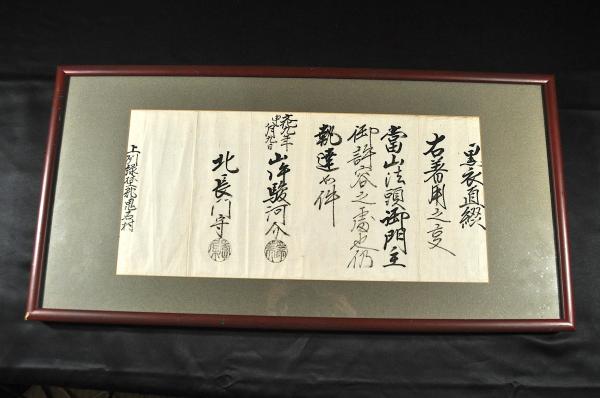 黒衣直綴
右著用之事
當山法頭御門主
御許容之處也仍
執達如件
山本駿河介
北長門守
上州緑埜郡鬼石村